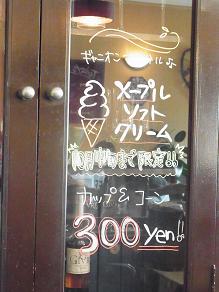 メープル
ソフト
クリーム
10月中旬まで限定!!
カップ&コーン
300 yen!!